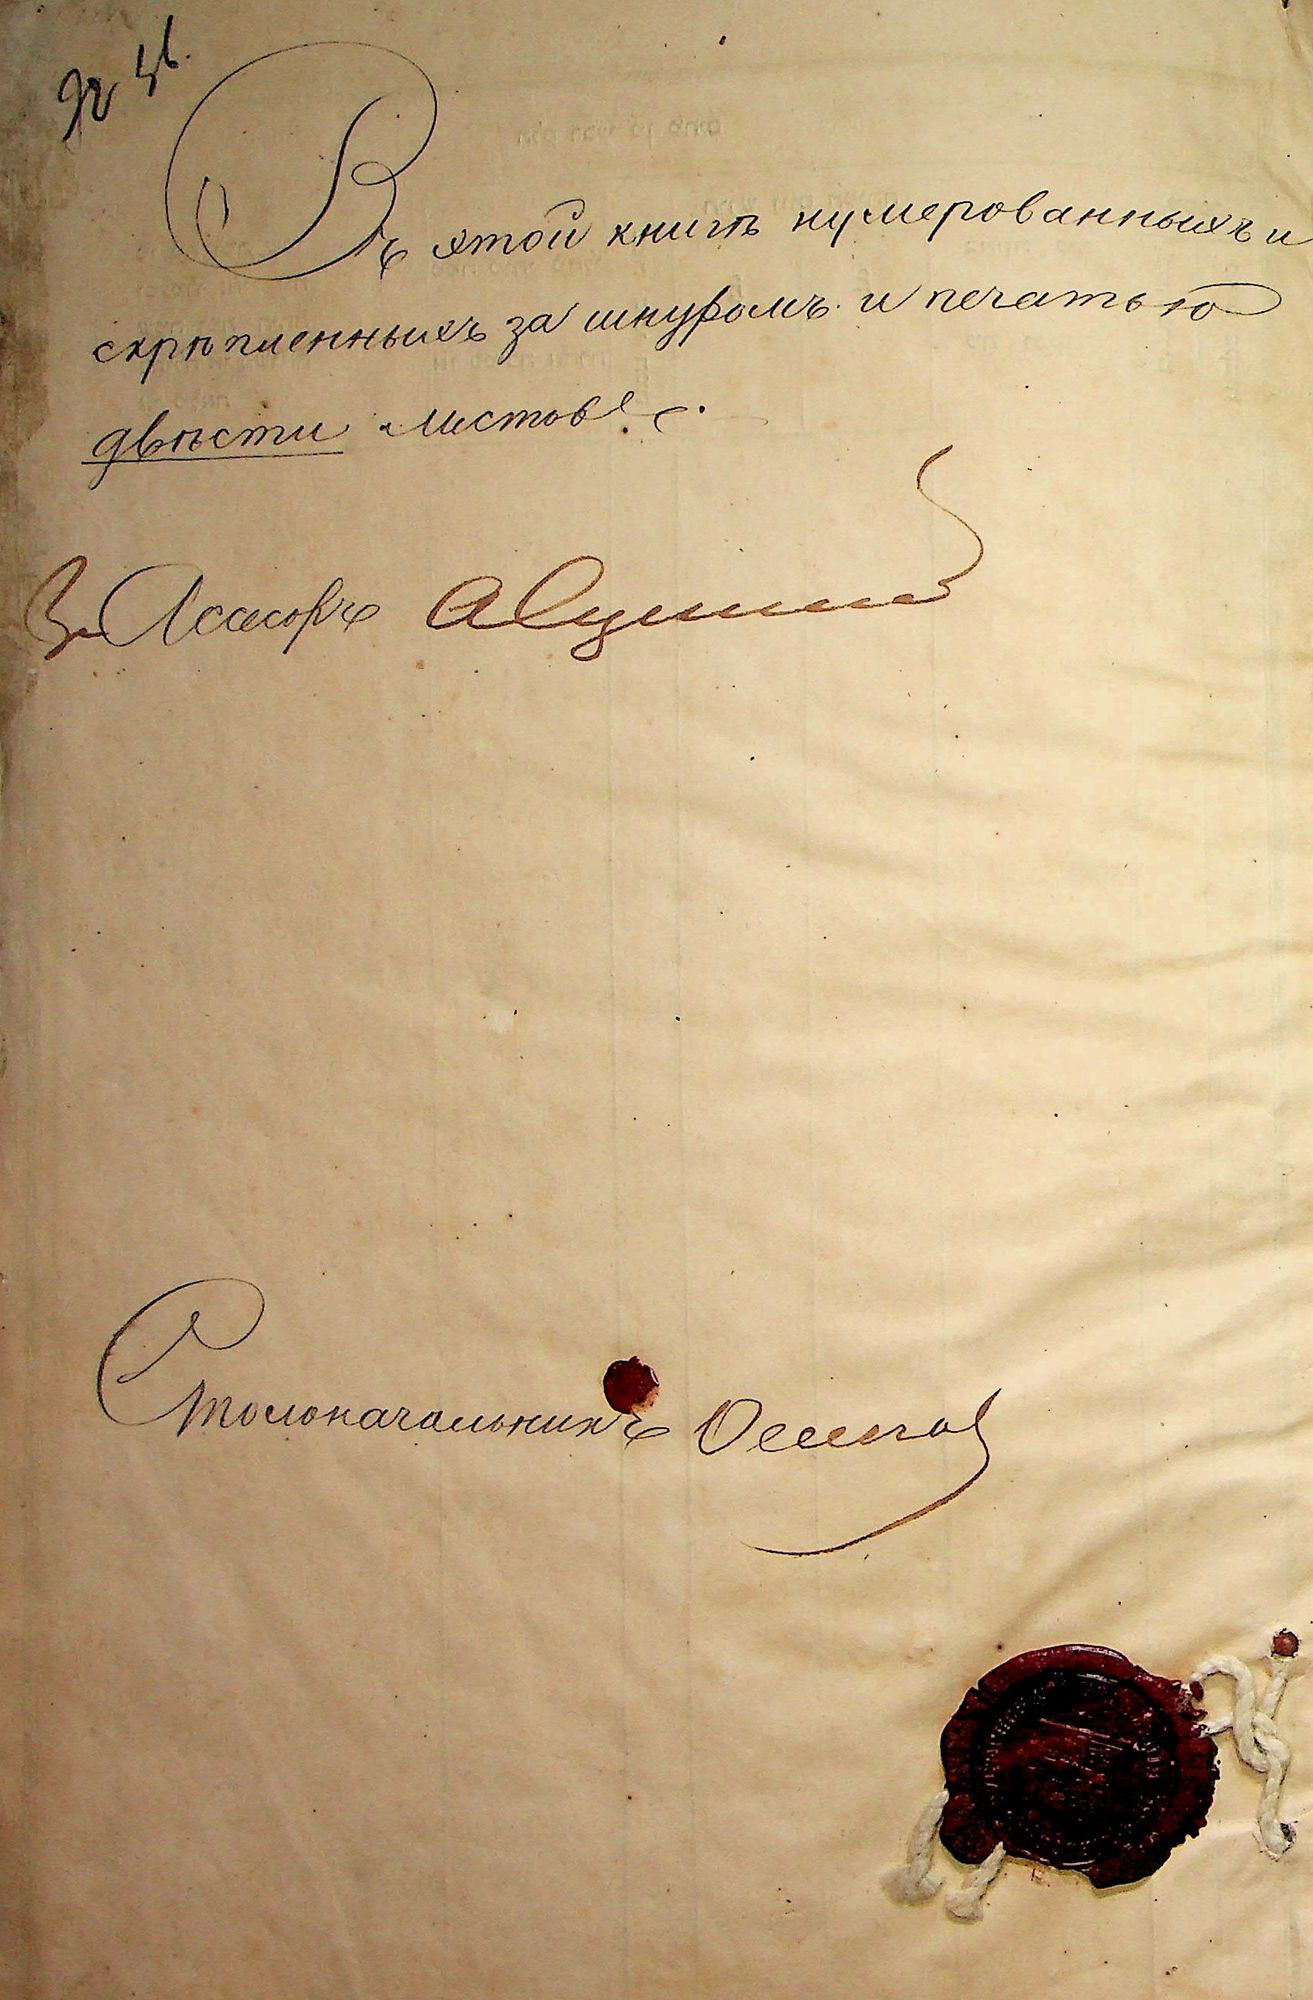 Въ этой книгѣ нумерованныхъ и
скрѣпленныхъ за шнуромъ и печатью
двѣсти листовъ.
За Асесоръ
Столоначальникъ Осипов